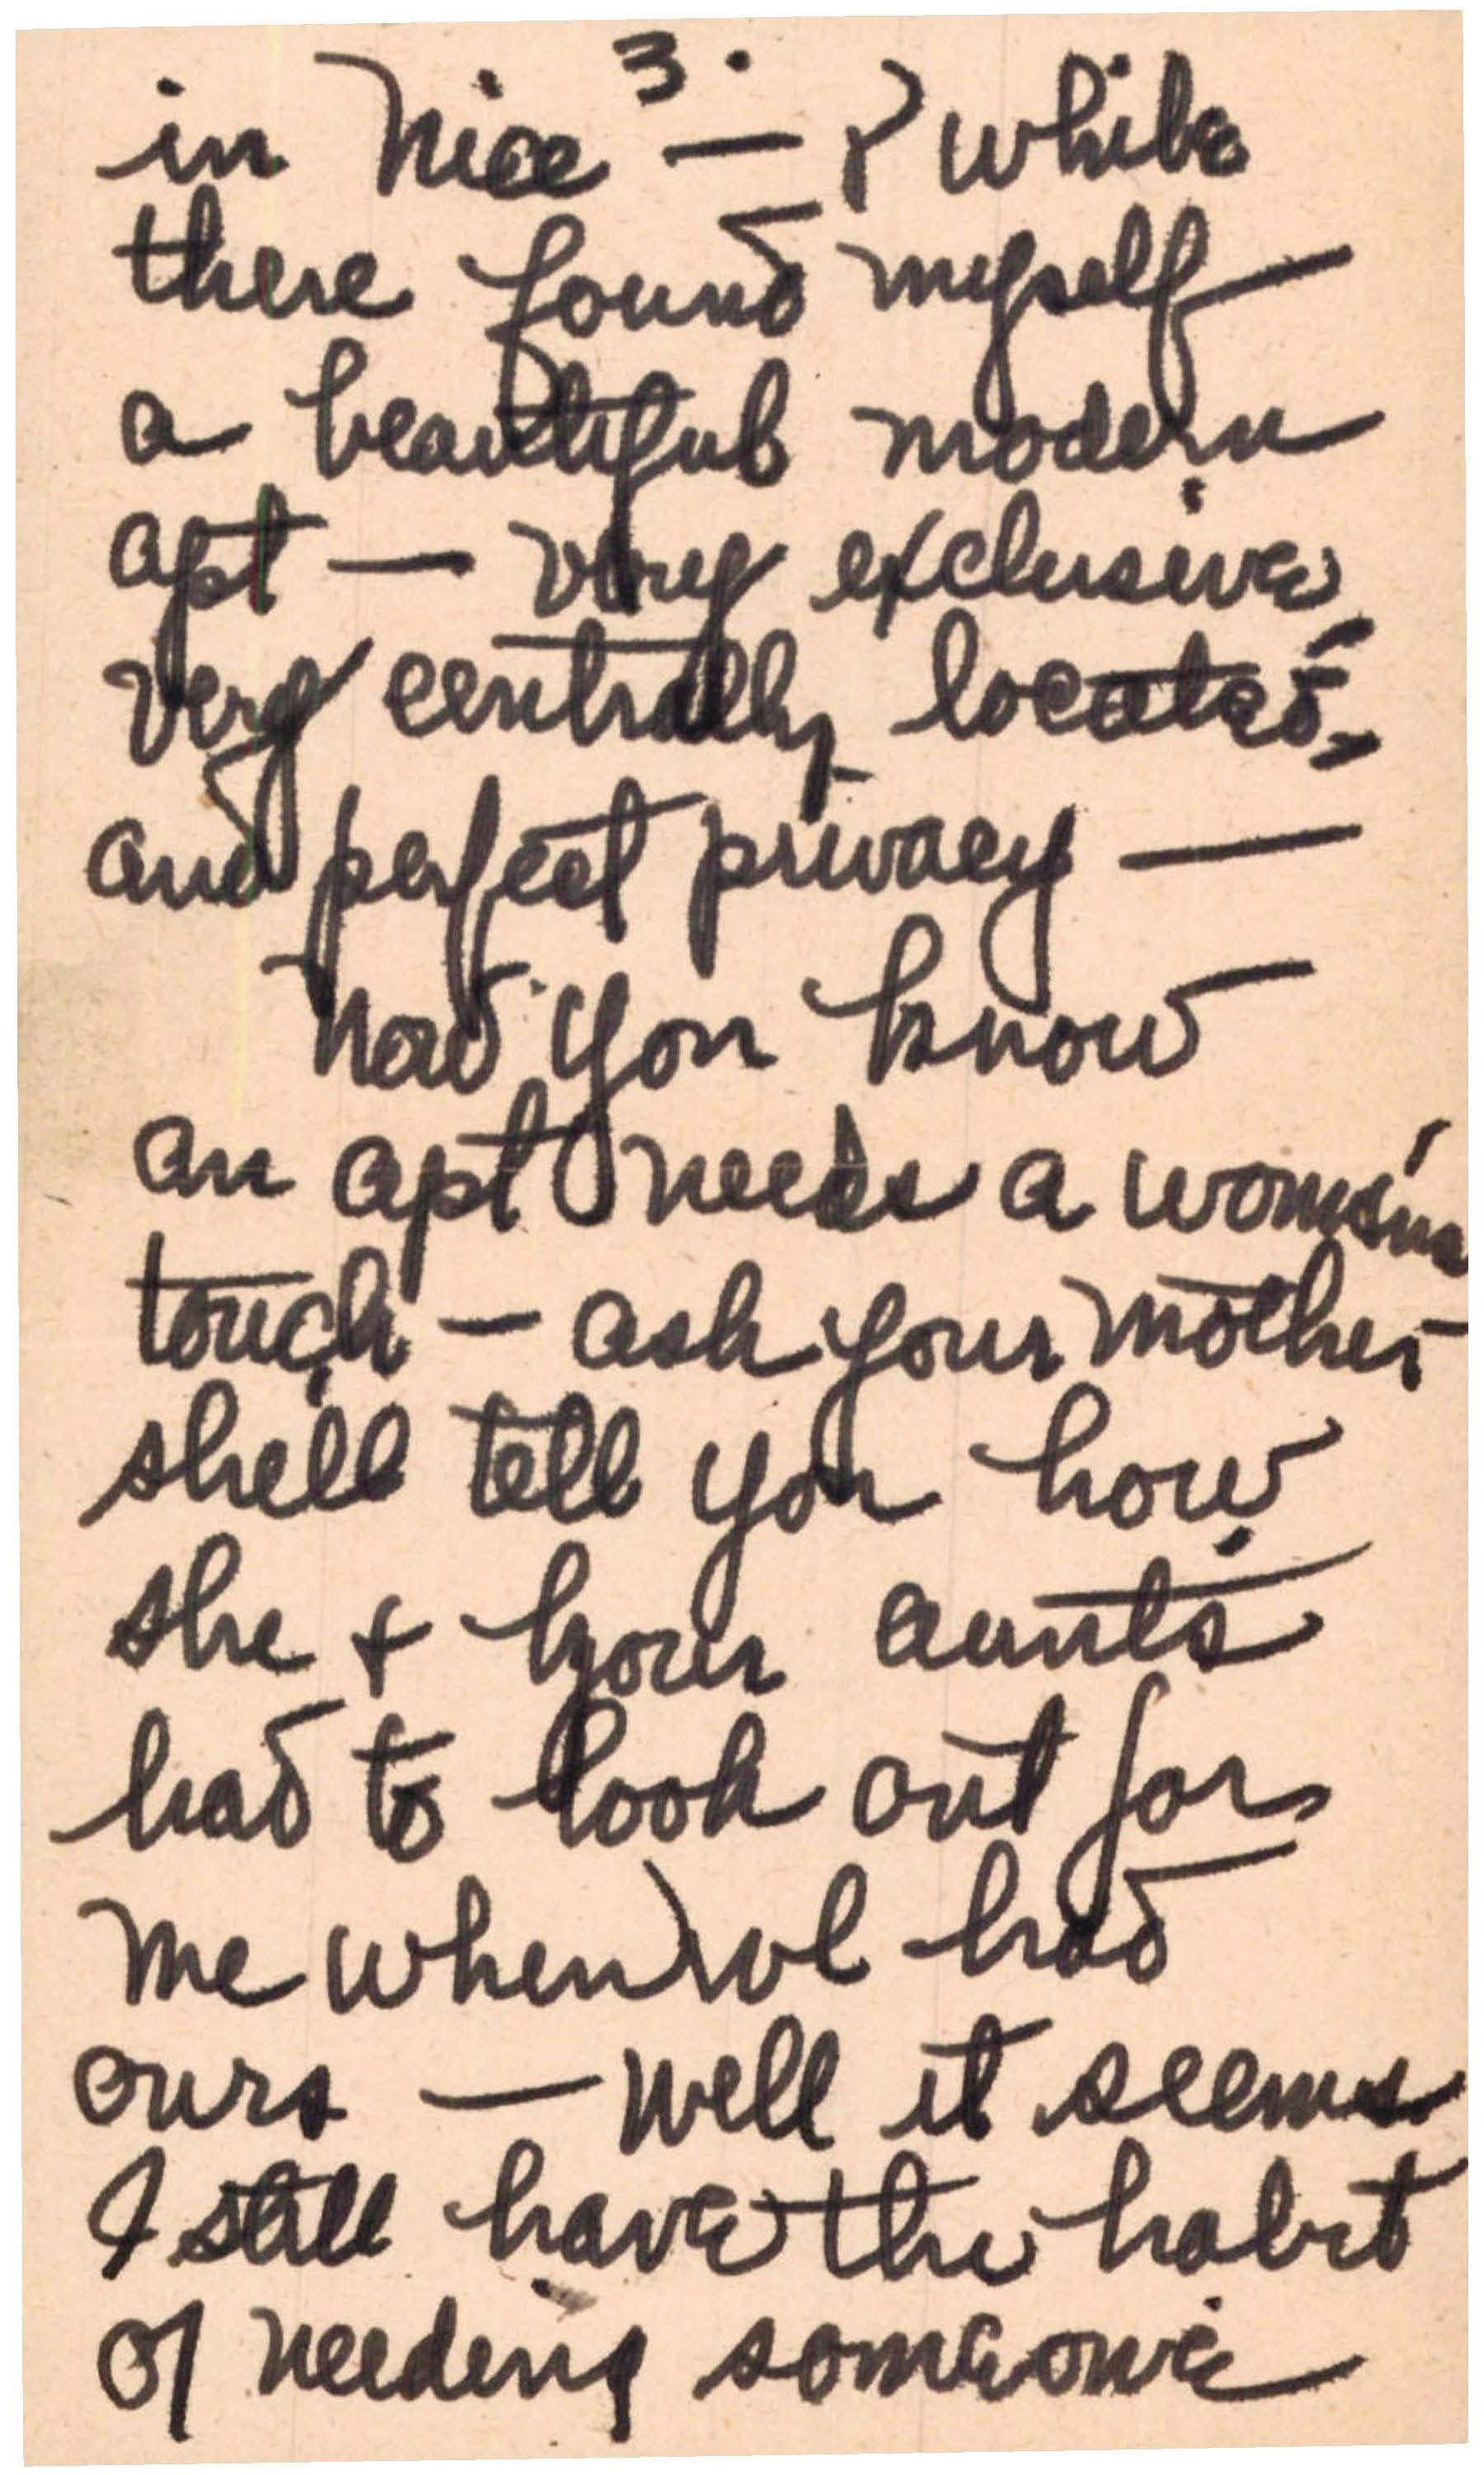 3.
in Nice — & while
there found myself
a beautiful modern
apt — very exclusive
very centrally located,
and perfect privacy —
Now you know
an apt needs a woman's
touch — ask your mother
she'll tell you how
she + your aunts
had to look out for
me when we had
ours — Well it seems
I still have the habit
of needing someone